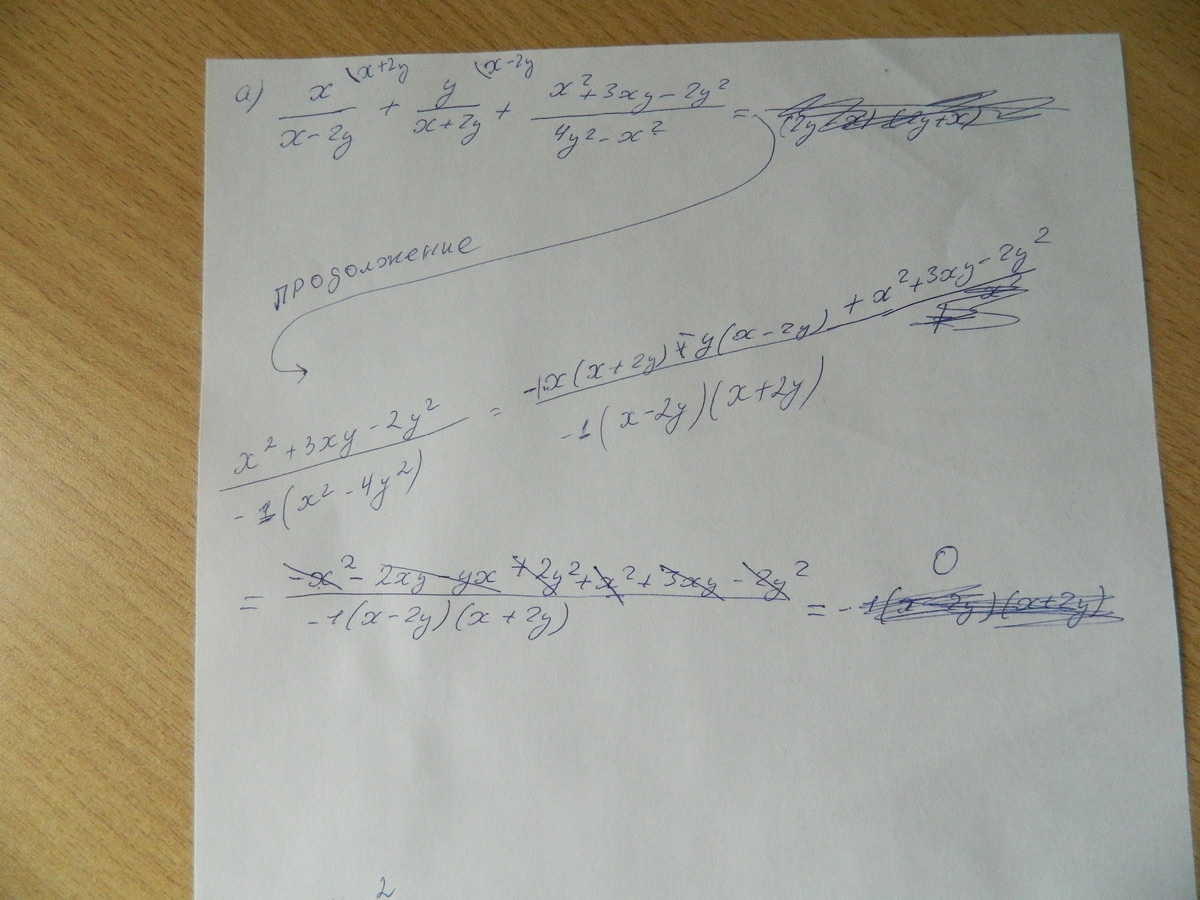 а) x/(x-2y) \x+2y + y/(x+2y) \x-2y + (x²+3xy-2y²)/(4y²-x²) =
продолжение
(x²+3xy-2y²)/(-1(x²-4y²)) = (-1x(x+2y)-y(x-2y)+x²+3xy-2y²)/(-1(x-2y)(x+2y))
= (-x²-2xy-yx+2y²+x²+3xy-2y²)/(-1(x-2y)(x+2y)) = 0
2